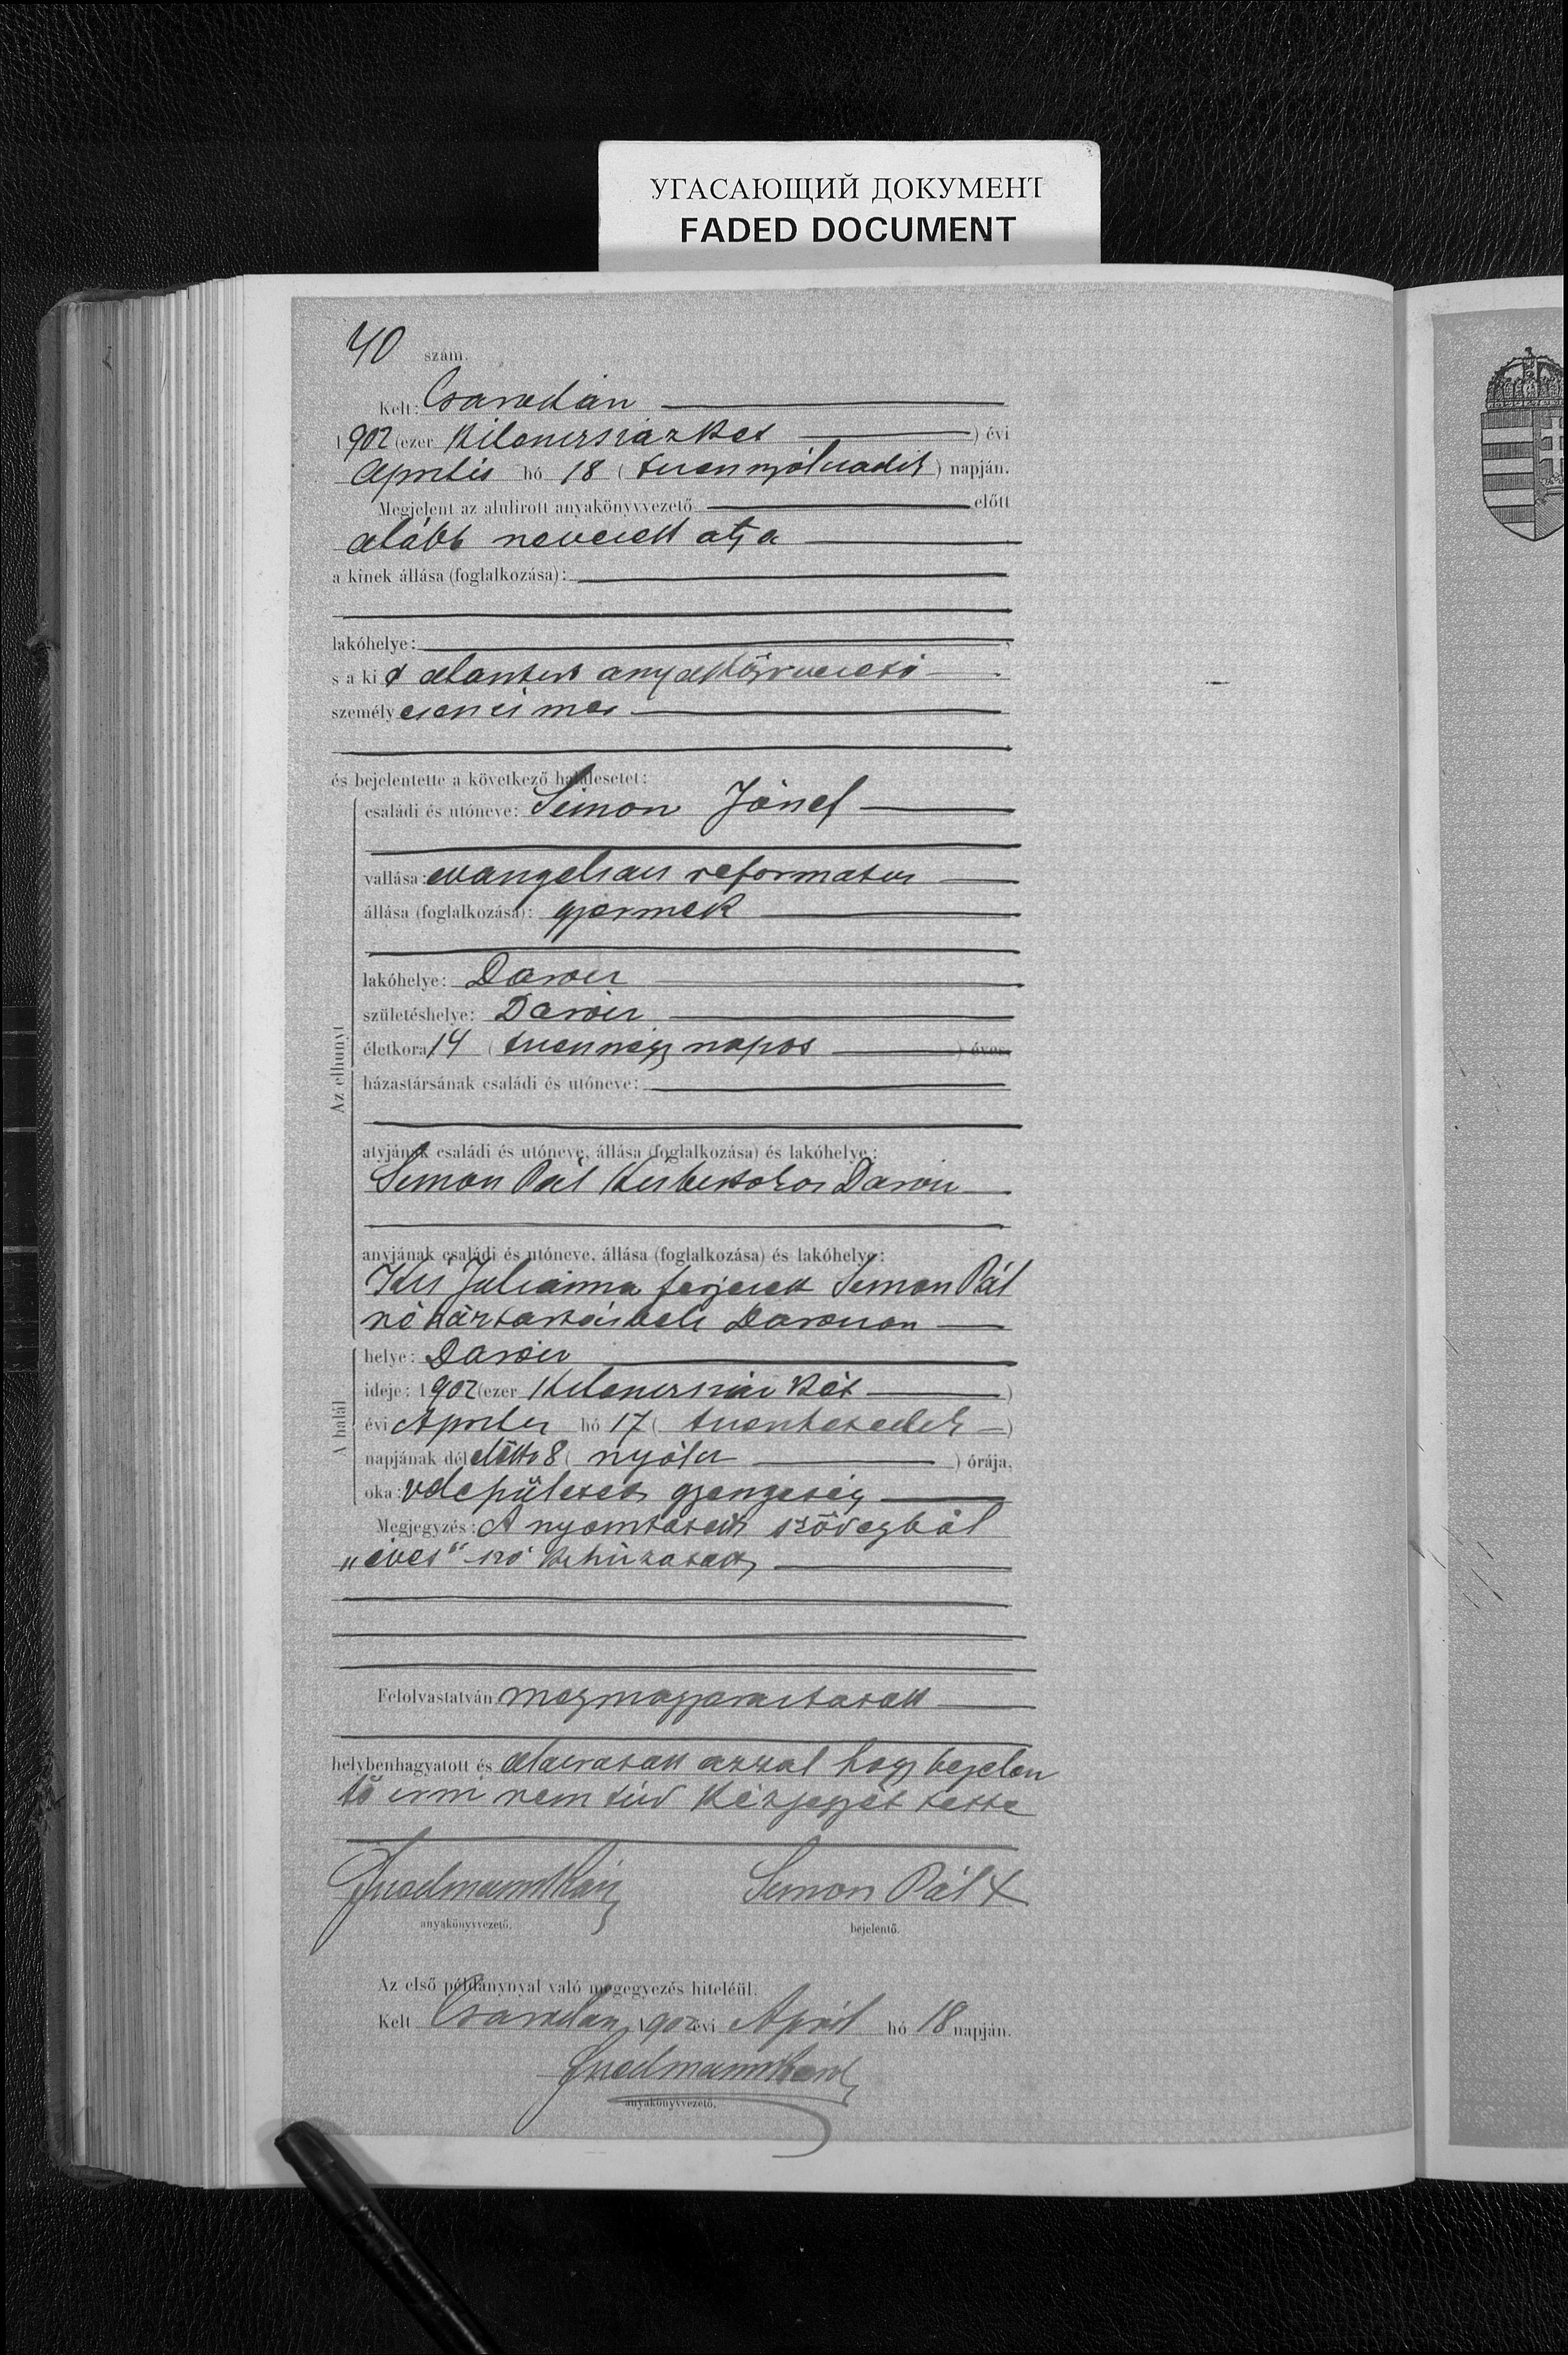 УГАСАЮЩИЙ ДОКУМЕНТ
FADED DOCUMENT
40 szám.
Kelt: Csarodán
1902 (ezer kilenczszázket ) évi
Április hó 18 ( tizennyolczadik ) napján.
Megjelent az alulirott anyakönyvvezető előtt
alább nevezett atja
a kinek állása (foglalkozása):
lakóhelye:
s a kit alantirt anyakönyvvezető
személyesen ismer
és bejelentette a következő halálesetet:
Az elhunyt
családi és utóneve: Simon József
vallása: evangelicus reformatus
állása (foglalkozása): gyermek
lakóhelye: Darócz
születéshelye: Darócz
életkora 14 ( tizennégy napos ) éves.
házastársának családi és utóneve:
atyjának családi és utóneve, állása (foglalkozása) és lakóhelye:
Simon Pál kisbirtokos Darócz
anyjának családi és utóneve, állása (foglalkozása) és lakóhelye:
Kis Juliánna ferjezett Simon Pál
né háztartásbeli Daroczon
A halál
helye: Darócz
ideje: 1902 (ezer kilenczszáz két )
évi Április hó 17 ( tizenhetedik )
napjának dél előtti 8 ( nyólcz ) órája,
oka: veleszületett gyengeség
Megjegyzés: A nyomtatott szövegből
„éves" szó kihúzatott
Felolvastatván megmagyaraztatott
helybenhagyatott és alairatott azzal hogy bejelen
tő irni nem tud kézjegyét tette
Simon Pál X
anyakönyvvezető. bejelentő.
Az első példánynyal való megegyezés hiteléül.
Kelt Csarodan, 1902 évi April hó 18 napján.
anyakönyvvezető.